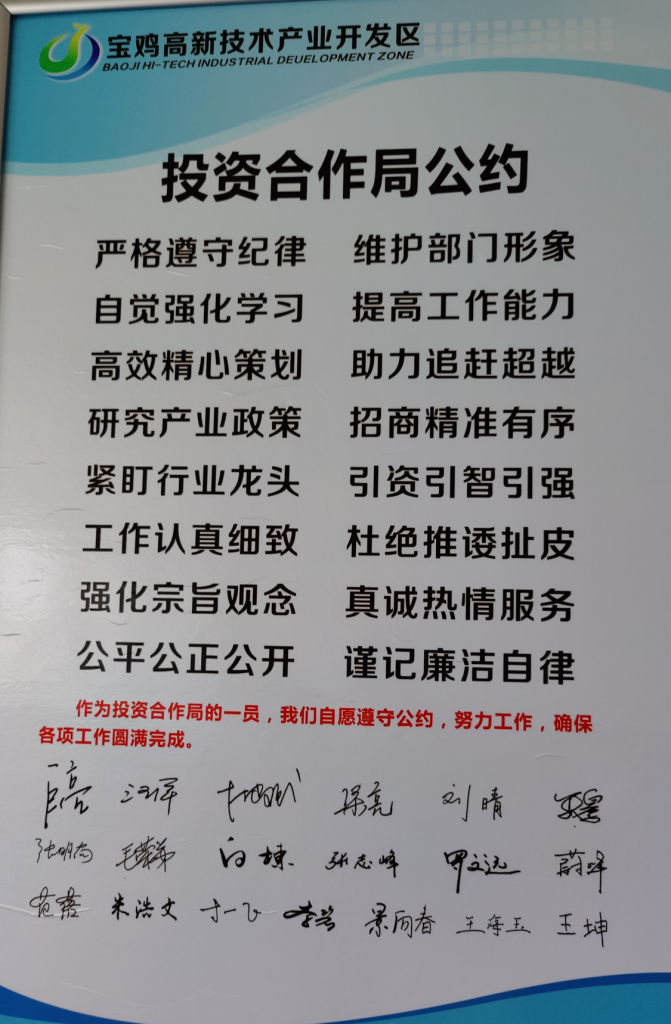 宝鸡高新技术产业开发区
BAOJI HI-TECH INDUSTRIAL DEUELOPMENT ZONE
投资合作局公约
严格遵守纪律 维护部门形象
自觉强化学习 提高工作能力
高效精心策划 助力追赶超越
研究产业政策 招商精准有序
紧盯行业龙头 引资引智引强
工作认真细致 杜绝推诿扯皮
强化宗旨观念 真诚热情服务
公平公正公开 谨记廉洁自律
作为投资合作局的一员，我们自愿遵守公约，努力工作，确保
各项工作圆满完成。
梁亮 刘晴
白栋 张志峰 罗文远
朱浩文 于一飞 景丽春 王坤